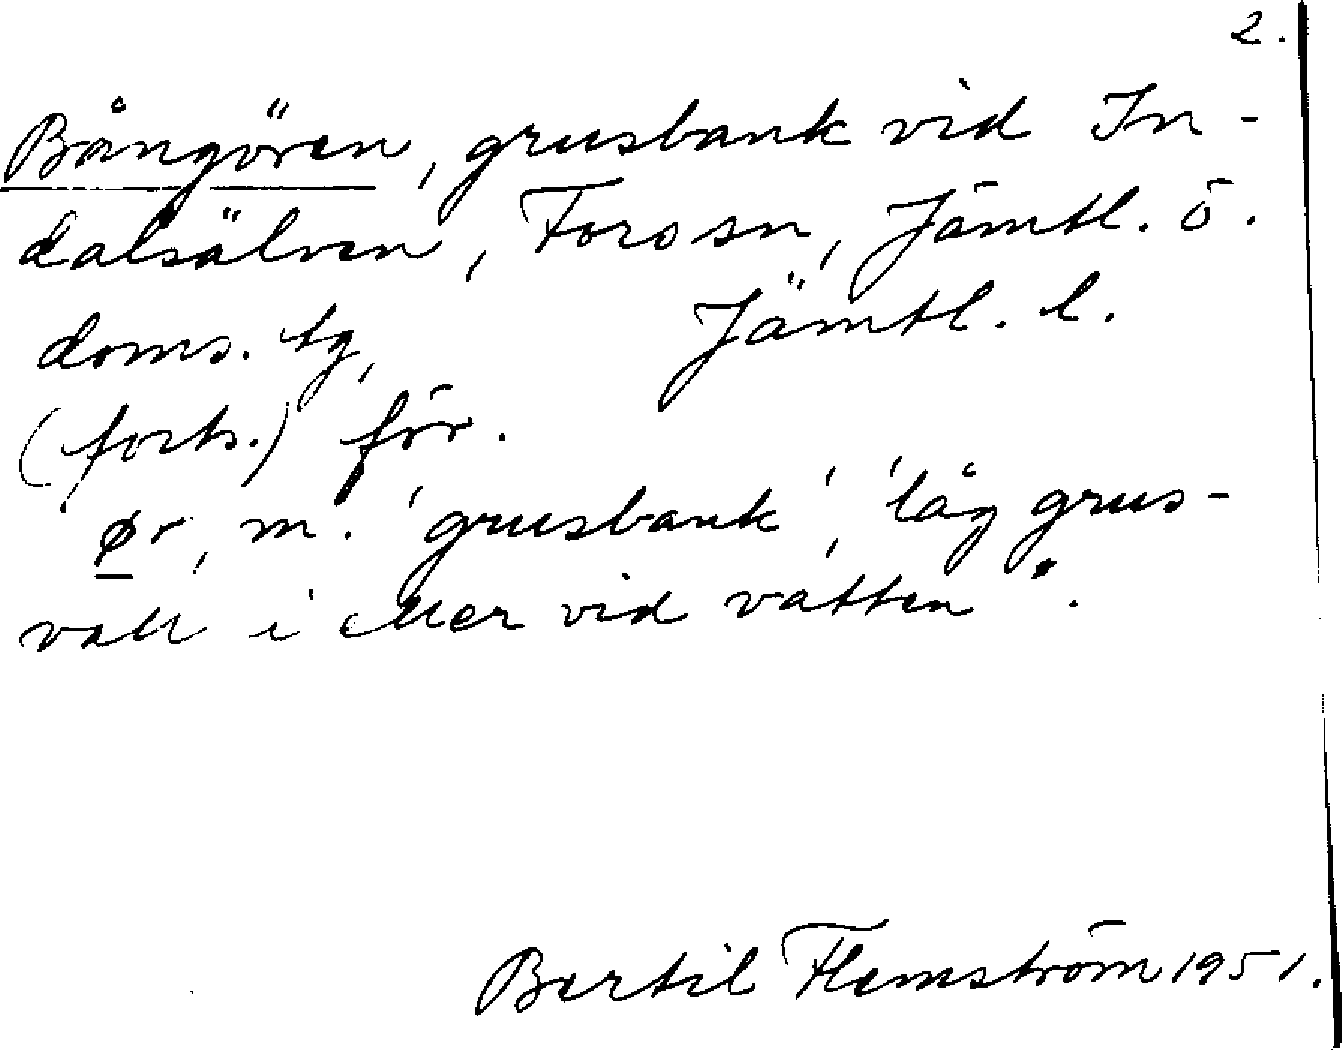 2.
Bångören, grusbank vid In-
dalsälven, Fors sn, Jämtl. ö.
doms. tg, Jämtl. l.
(forts.) för.
ør, m. 'grusbank', 'låg grus-
vall i eller vid vatten'.
Bertil Flemström 1951.